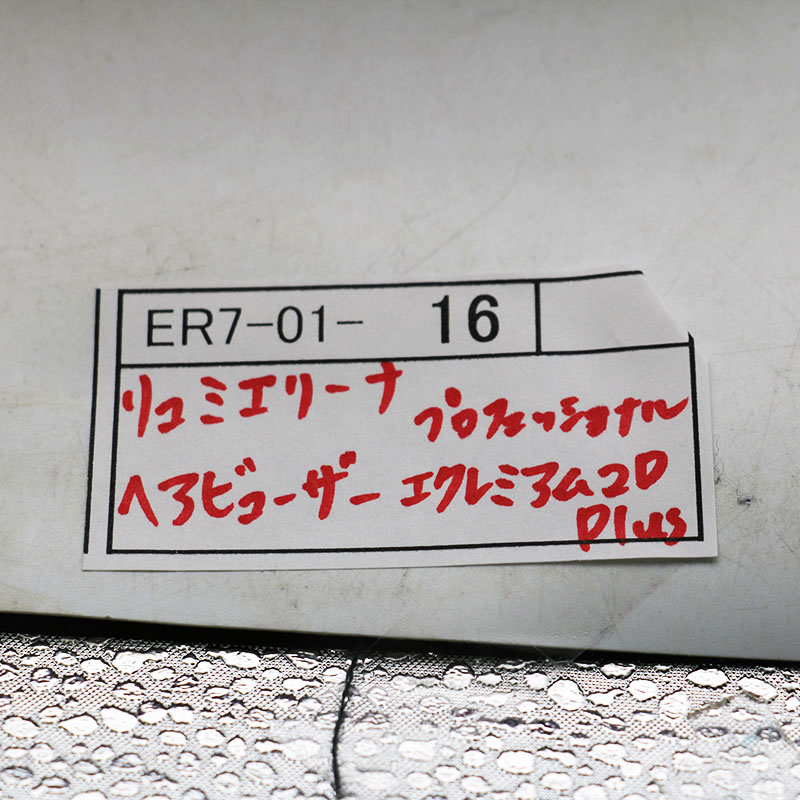 ER7-01- 16
リュミエリーナ プロフェッショナル
ヘアビューザー エクレミアム2D
Plus